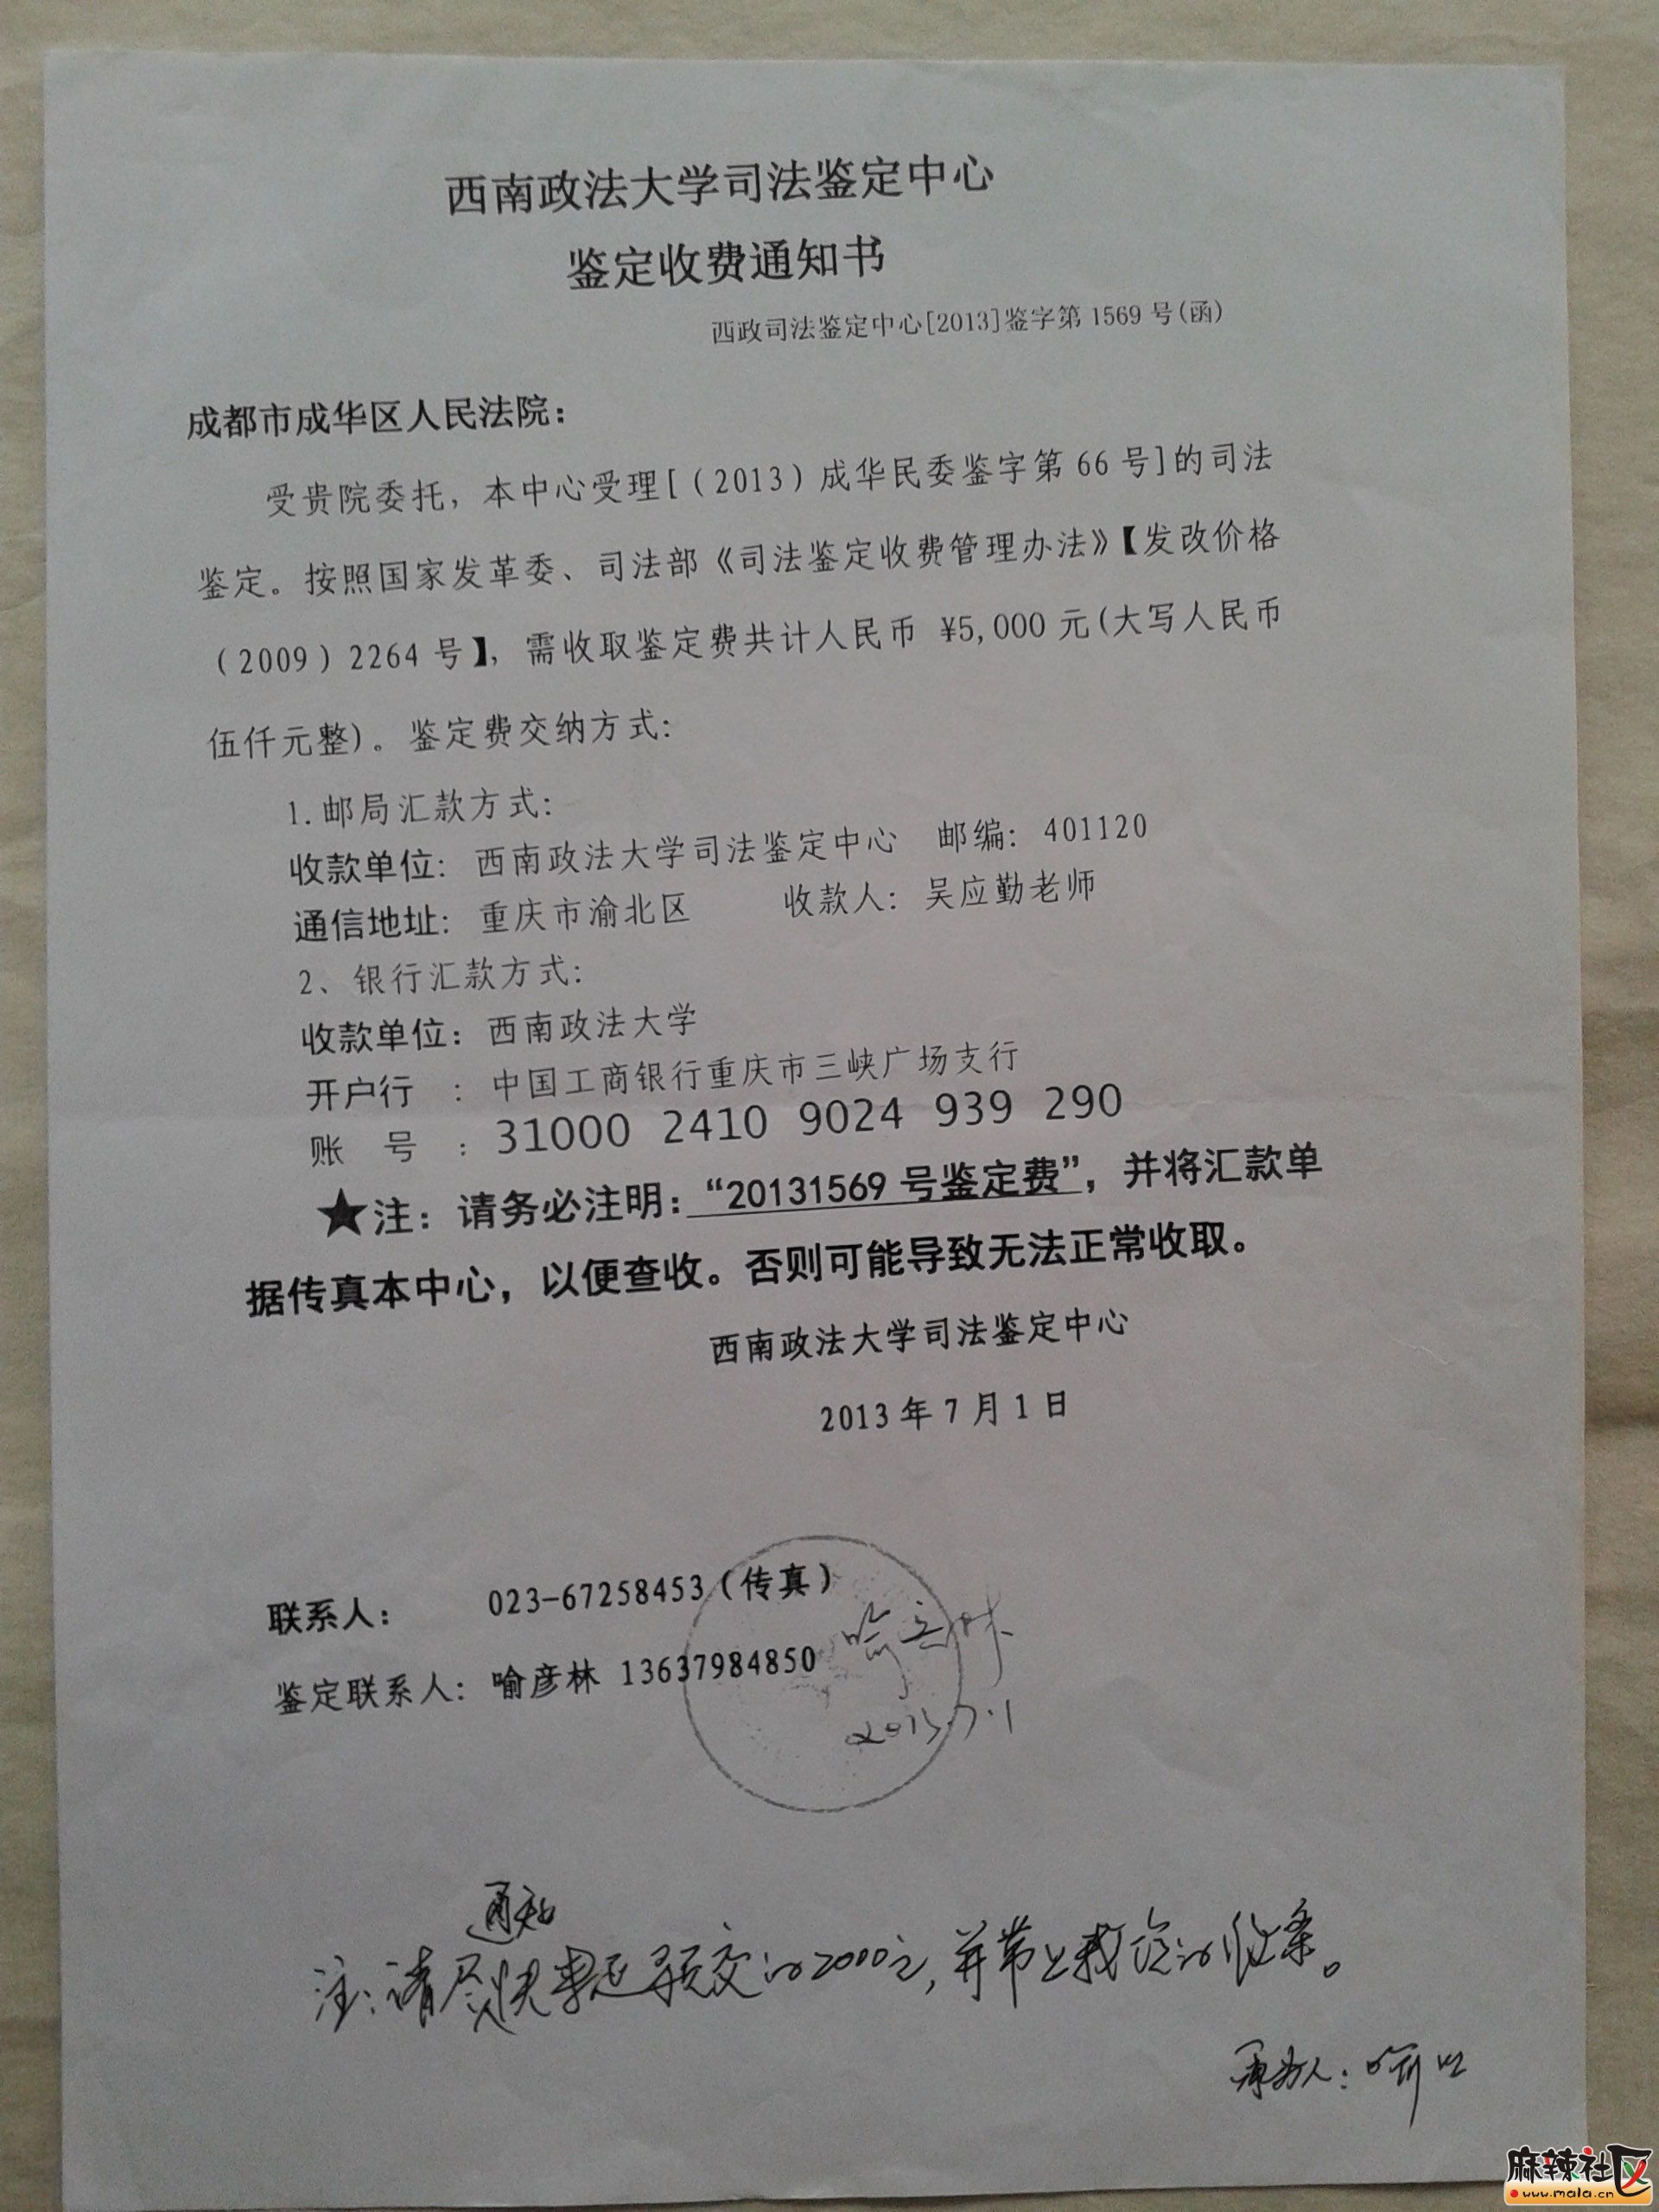 西南政法大学司法鉴定中心
鉴定收费通知书
西政司法鉴定中心[2013]鉴字第1569号(函)
成都市成华区人民法院：
受贵院委托，本中心受理[（2013）成华民委鉴字第66号]的司法
鉴定。按照国家发革委、司法部《司法鉴定收费管理办法》【发改价格
（2009）2264号】，需收取鉴定费共计人民币 ¥5,000元(大写人民币
伍仟元整)。鉴定费交纳方式：
1.邮局汇款方式：
收款单位：西南政法大学司法鉴定中心 邮编：401120
通信地址：重庆市渝北区 收款人：吴应勤老师
2、银行汇款方式：
收款单位：西南政法大学
开户行 ：中国工商银行重庆市三峡广场支行
账 号 ：31000 2410 9024 939 290
★注：请务必注明：“20131569号鉴定费”，并将汇款单
据传真本中心，以便查收。否则可能导致无法正常收取。
西南政法大学司法鉴定中心
2013年7月1日
联系人： 023-67258453（传真）
鉴定联系人：喻彦林 13637984850
喻彦林
2013.7.1
通知
注：请尽快来退预交的2000元，并带上我院的收条。
承办人：
麻辣社区
www.mala.cn